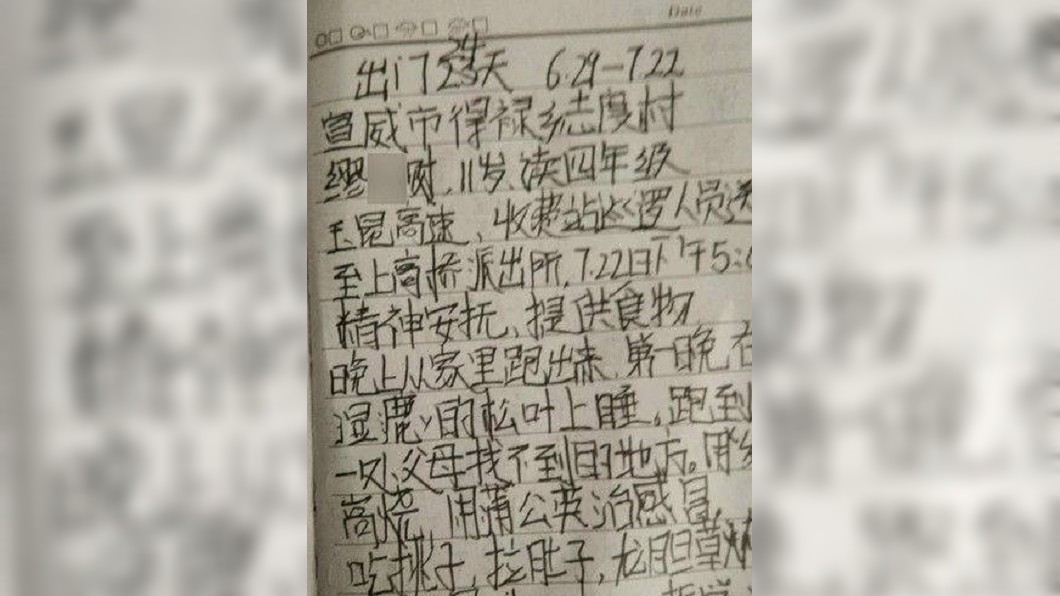 Date
出门24天 6.29-7.22
宣威市得禄乡志度村
缪 财,11岁、读四年级
玉昆高速、收费站巡逻人员送
至上高桥派出所,7.22日下午5:0
精神安抚、提供食物
晚上从家里跑出来,第一晚在
湿漉漉的松叶上睡。跑到
一处父母找不到的地方。
高烧,用蒲公英治感冒,
吃桃子,拉肚子,龙胆草